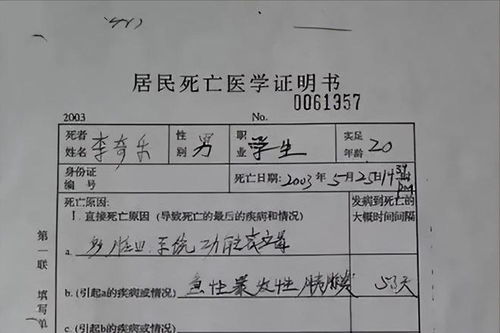 居民死亡医学证明书
0061357
2003 No.
死者姓名 李奇乐 性别 男 职业 学生 实足年龄 20
身份证编号 死亡日期: 2003年5月25日14
死亡原因: 发病到死亡的
1. 直接死亡原因 (导致死亡的最后的疾病和情况) 大概时间间隔
a. 多脏器系统功能衰竭
b. (引起a的疾病或情况) 急性暴发性胰腺炎 天
c. (引起b的疾病或情况)
第一联 填写单